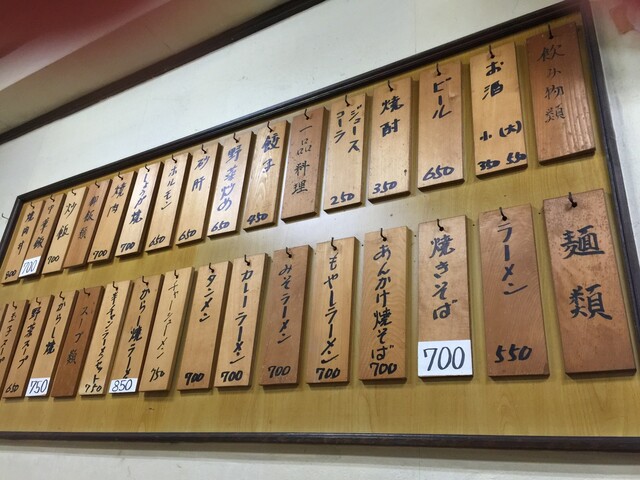 飲み物類
お酒 小(大) 350 550
ビール 650
焼酎 350
ジュース コーラ 250
一品料理
餃子 450
野菜炒め 650
砂肝 650
ホルモン 650
しょうが焼 700
焼肉 700
御飯類
炒飯 700
中華飯 700
焼肉丼
麺類
ラーメン 550
焼きそば 700
あんかけ焼そば 700
もやしラーメン 700
みそラーメン 700
カレーラーメン 700
タンメン 700
チャーシューメン 750
からし焼ラーメン 850
750
スープ類
からし焼
野菜スープ 750
玉子スープ 650